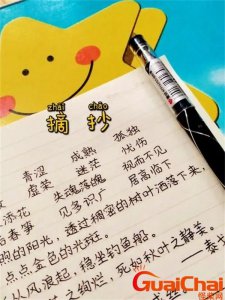 zhāi chāo
摘抄
孤独
成熟 忧伤
青涩 迷茫 视而不见
虚荣 失魂落魄 居高临下
添花 见多识广
后春笋 透过稠密的树叶洒落下来,
的阳光,
点点金色的光斑。
从风浪起,稳坐钓鱼船。
之绚烂,死如秋叶之静美。
——泰
GuaiChai